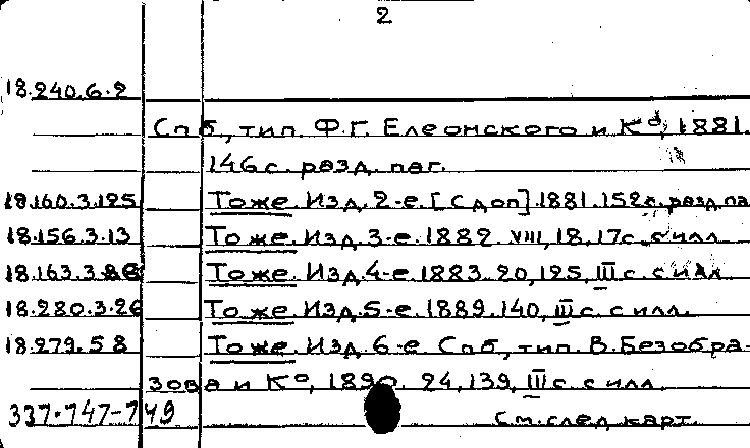 2
18.240.6.2
Спб, тип. Ф.Г. Елеонского и Ко, 1881.
146 с. разд. паг.
18.160.3.125 То же. Изд. 2-е. [С доп] 1881. 152 с. разд. па
18.156.3.13 То же. Изд. 3-е. 1882. VIII, 18, 17 с. с илл.
18.163.3. То же. Изд. 4-е 1883. 20, 125, III с. с илл
18.280.3.26 То же. Изд. 5-е. 1889. 140, III с. с илл.
18.279.58 То же. Изд. 6-е Спб, тип. В. Безобра-
зова и Ко, 1890. 24, 139, III с. с илл.
337-747-749 См. след карт.